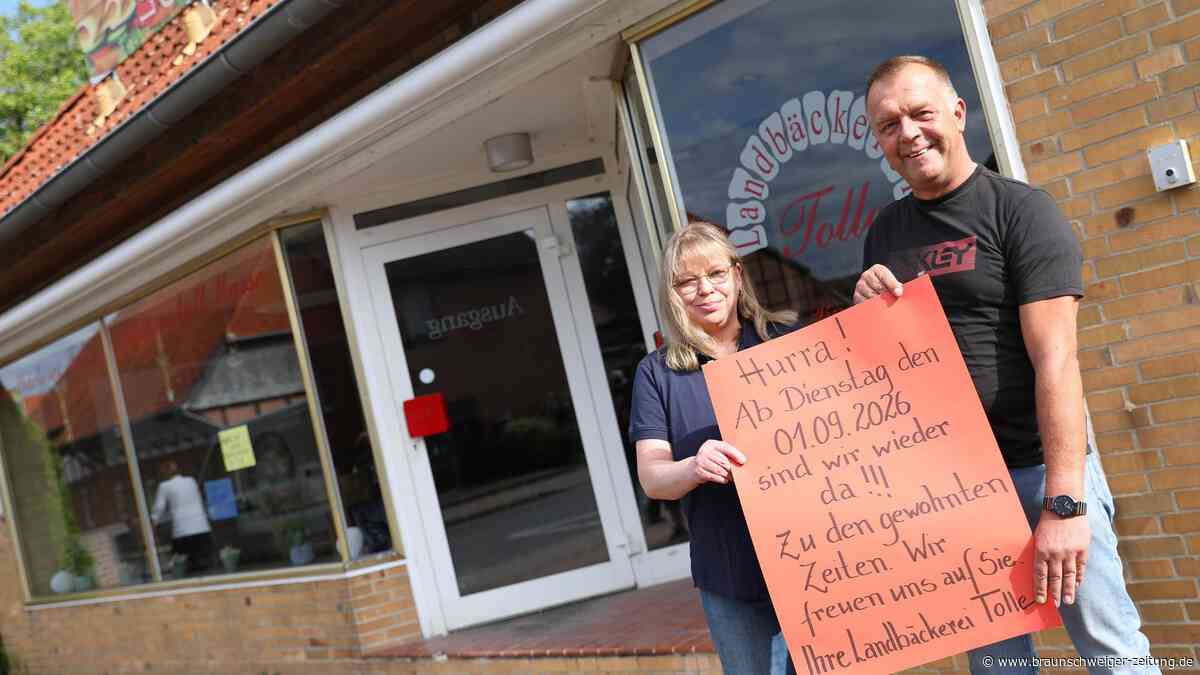 Ausgang
Landbäcker
Tolle
KLEY
Hurra!
Ab Dienstag den
01.09.2026
sind wir wieder
da!!!
Zu den gewohnten
Zeiten. Wir
freuen uns auf Sie.
Ihre Landbäckerei Tolle
© www.braunschweiger-zeitung.de